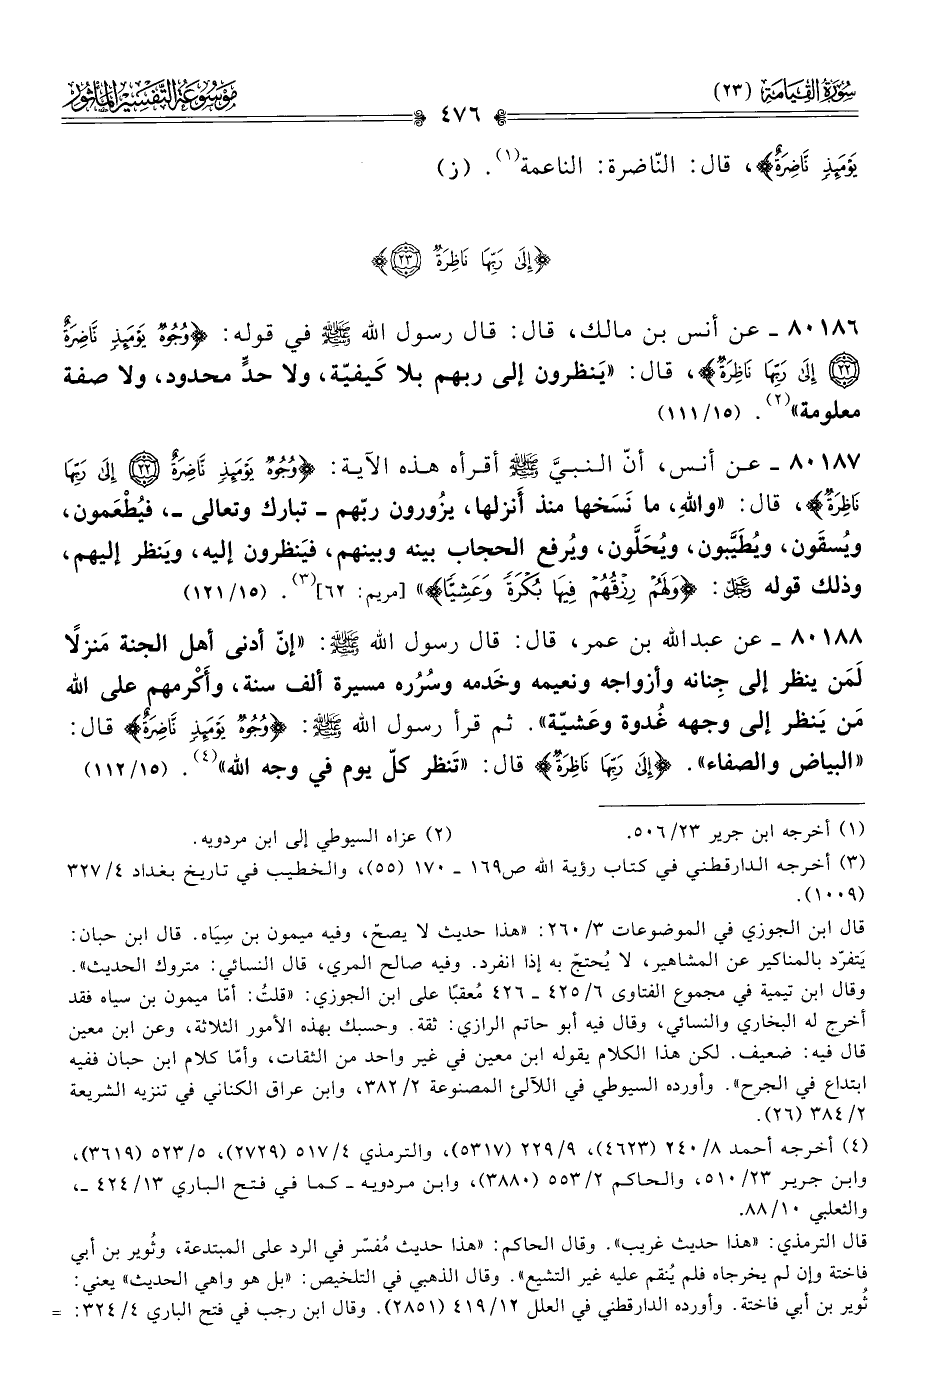 سُورَةُ القِيَامَة (٢٣)
مَوْسُوعَة التَّفْسِير المَأْثُور
٤٧٦
يَوْمَئِذٍ نَّاضِرَةٌ﴾، قال: النّاضرة: الناعمة(١). (ز)
﴿إِلَىٰ رَبِّهَا نَاظِرَةٌ ۝٢٣﴾
٨٠١٨٦ ـ عن أنس بن مالك، قال: قال رسول الله ﷺ في قوله: ﴿وُجُوهٌ يَوْمَئِذٍ نَّاضِرَةٌ
۝٢٢ إِلَىٰ رَبِّهَا نَاظِرَةٌ﴾، قال: «يَنظرون إلى ربهم بلا كَيفيّة، ولا حدٍّ محدود، ولا صفة
معلومة»(٢). (١١١/١٥)
٨٠١٨٧ ـ عن أنس، أنّ النبيَّ ﷺ أقرأه هذه الآية: ﴿وُجُوهٌ يَوْمَئِذٍ نَّاضِرَةٌ ۝٢٢ إِلَىٰ رَبِّهَا
نَاظِرَةٌ﴾، قال: «واللهِ، ما نَسَخها منذ أَنزلها، يزُورون ربّهم ـ تبارك وتعالى ـ، فيُطْعَمون،
ويُسقَون، ويُطَيَّبون، ويُحَلَّون، ويُرفع الحجاب بينه وبينهم، فيَنظرون إليه، ويَنظر إليهم،
وذلك قوله ﷿: ﴿وَلَهُمْ رِزْقُهُمْ فِيهَا بُكْرَةً وَعَشِيًّا﴾» [مريم: ٦٢](٣). (١٢١/١٥)
٨٠١٨٨ ـ عن عبدالله بن عمر، قال: قال رسول الله ﷺ: «إنّ أدنى أهل الجنة مَنزلًا
لَمَن ينظر إلى جِنانه وأزواجه ونعيمه وخَدمه وسُرُره مسيرة ألف سنة، وأَكْرمهم على الله
مَن يَنظر إلى وجهه غُدوة وعَشيّة». ثم قرأ رسول الله ﷺ: ﴿وُجُوهٌ يَوْمَئِذٍ نَّاضِرَةٌ﴾ قال:
«البياض والصفاء». ﴿إِلَىٰ رَبِّهَا نَاظِرَةٌ﴾ قال: «تَنظر كلّ يوم في وجه الله»(٤). (١١٢/١٥)
(١) أخرجه ابن جرير ٥٠٦/٢٣. (٢) عزاه السيوطي إلى ابن مردويه.
(٣) أخرجه الدارقطني في كتاب رؤية الله ص١٦٩ ـ ١٧٠ (٥٥)، والخطيب في تاريخ بغداد ٣٢٧/٤
(١٠٠٩).
قال ابن الجوزي في الموضوعات ٢٦٠/٣: «هذا حديث لا يصحّ، وفيه ميمون بن سِيَاه. قال ابن حبان:
يَتفرّد بالمناكير عن المشاهير، لا يُحتجّ به إذا انفرد. وفيه صالح المري، قال النسائي: متروك الحديث».
وقال ابن تيمية في مجموع الفتاوى ٤٢٥/٦ ـ ٤٢٦ مُعقبًا على ابن الجوزي: «قلتُ: أمّا ميمون بن سياه فقد
أخرج له البخاري والنسائي، وقال فيه أبو حاتم الرازي: ثقة. وحسبك بهذه الأمور الثلاثة، وعن ابن معين
قال فيه: ضعيف. لكن هذا الكلام يقوله ابن معين في غير واحد من الثقات، وأمّا كلام ابن حبان ففيه
ابتداع في الجرح». وأورده السيوطي في اللآلئ المصنوعة ٣٨٢/٢، وابن عراق الكناني في تنزيه الشريعة
٣٨٤/٢ (٢٦).
(٤) أخرجه أحمد ٢٤٠/٨ (٤٦٢٣)، ٢٢٩/٩ (٥٣١٧)، والترمذي ٥١٧/٤ (٢٧٢٩)، ٥٢٣/٥ (٣٦١٩)،
وابن جرير ٥١٠/٢٣، والحاكم ٥٥٣/٢ (٣٨٨٠)، وابن مردويه ـ كما في فتح الباري ٤٢٤/١٣ ـ،
والثعلبي ٨٨/١٠.
قال الترمذي: «هذا حديث غريب». وقال الحاكم: «هذا حديث مُفسّر في الرد على المبتدعة، وثُوير بن أبي
فاختة وإن لم يخرجاه فلم يُنقم عليه غير التشيع». وقال الذهبي في التلخيص: «بل هو واهي الحديث» يعني:
ثُوير بن أبي فاختة. وأورده الدارقطني في العلل ٤١٩/١٢ (٢٨٥١). وقال ابن رجب في فتح الباري ٣٢٤/٤: =